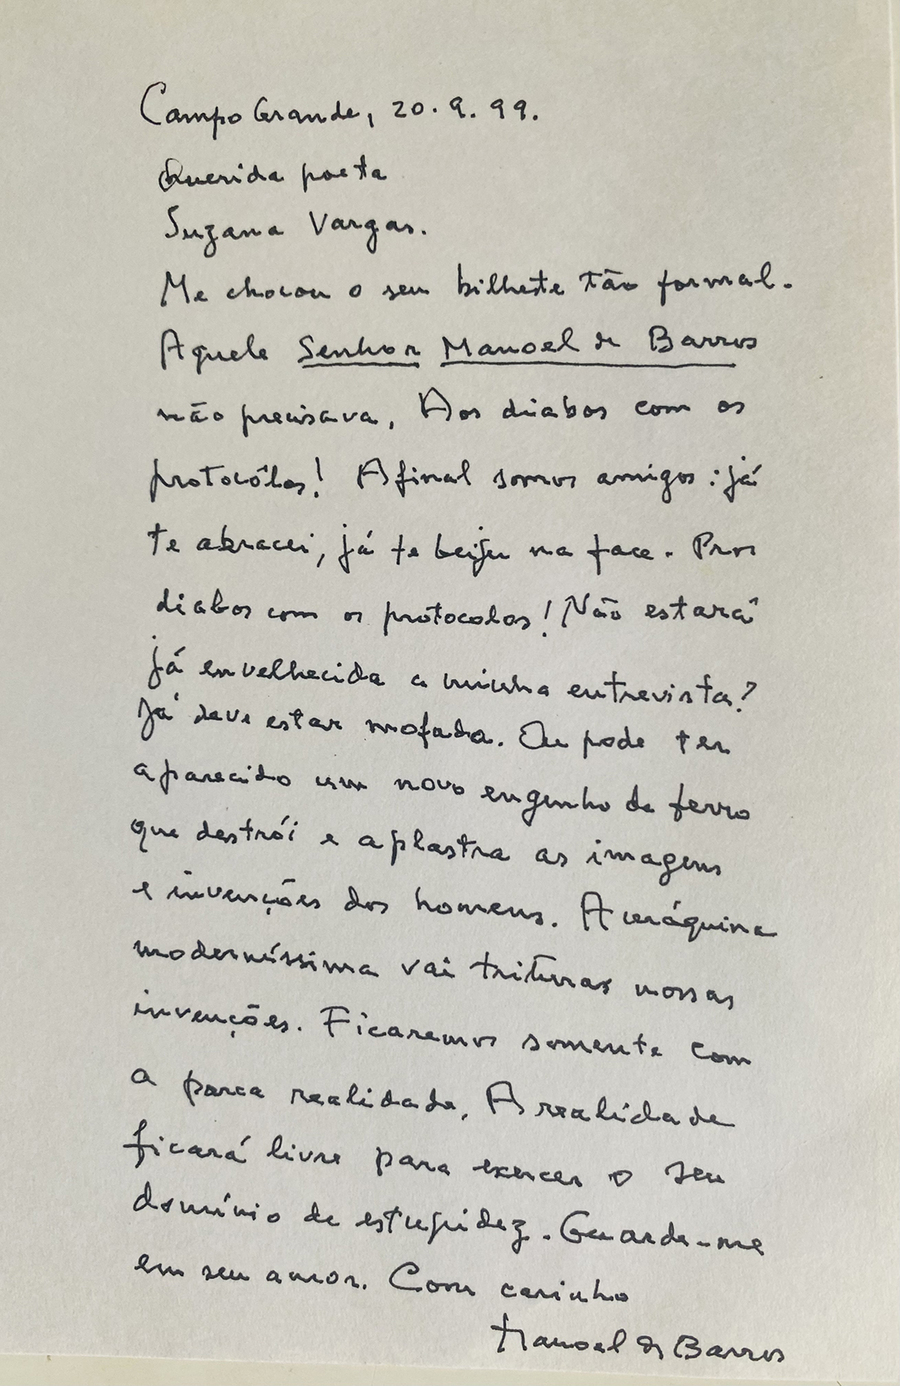 Campo Grande, 20.9.99.
Querida poeta
Suzana Vargas.
Me chocou o seu bilhete tão formal.
Aquele Senhor Manoel de Barros
não precisava. Aos diabos com os
protocólos! Afinal somos amigos: já
te abracei, já te beijei na face. Pros
diabos com os protocolos! Não estará
já envelhecida a minha entrevista?
Já deve estar mofada. Ou pode ter
aparecido um novo engenho de ferro
que destrói e aplastra as imagens
e invenções dos homens. A máquina
moderníssima vai triturar nossas
invenções. Ficaremos somente com
a parca realidade. A realidade
ficará livre para exercer o seu
domínio de estupidez. Guarde-me
em seu amor. Com carinho
Manoel de Barros